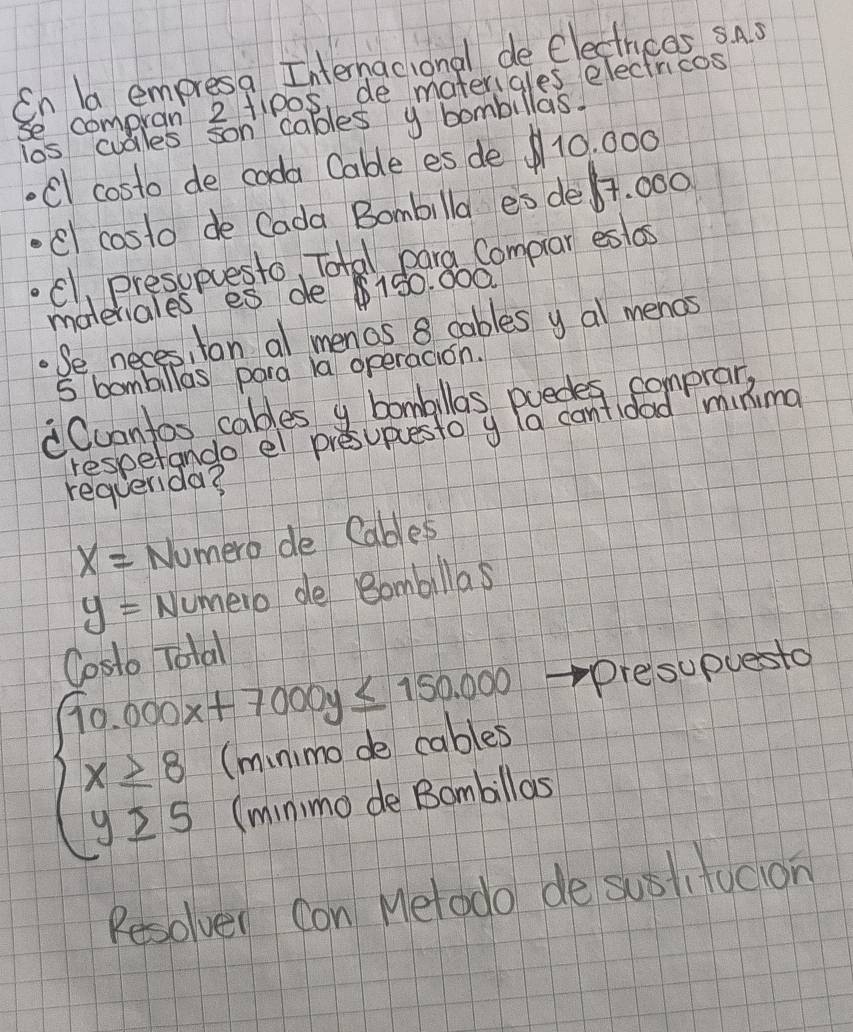 En la empresa Internacional de Electricas S.A.S
se compran 2 tipos de materiales electricos
los cuales son cables y bombillas.
• El costo de cada Cable es de $10.000
• El costo de Cada Bombilla es de $7.000
• El presupuesto Total para Comprar estos
materiales es de $150.000
• Se necesitan al menos 8 cables y al menos
5 bombillas para la operación.
¿Cuantos cables y bombillas puedes comprar,
respetando el presupuesto y la cantidad minima
requerida?
X = Numero de Cables
y = Numero de Bombillas
Costo Total
10.000x + 7000y ≤ 150.000 → presupuesto
x ≥ 8 (minimo de cables
y ≥ 5 (minimo de Bombillas
Resolver Con Metodo de sustitucion